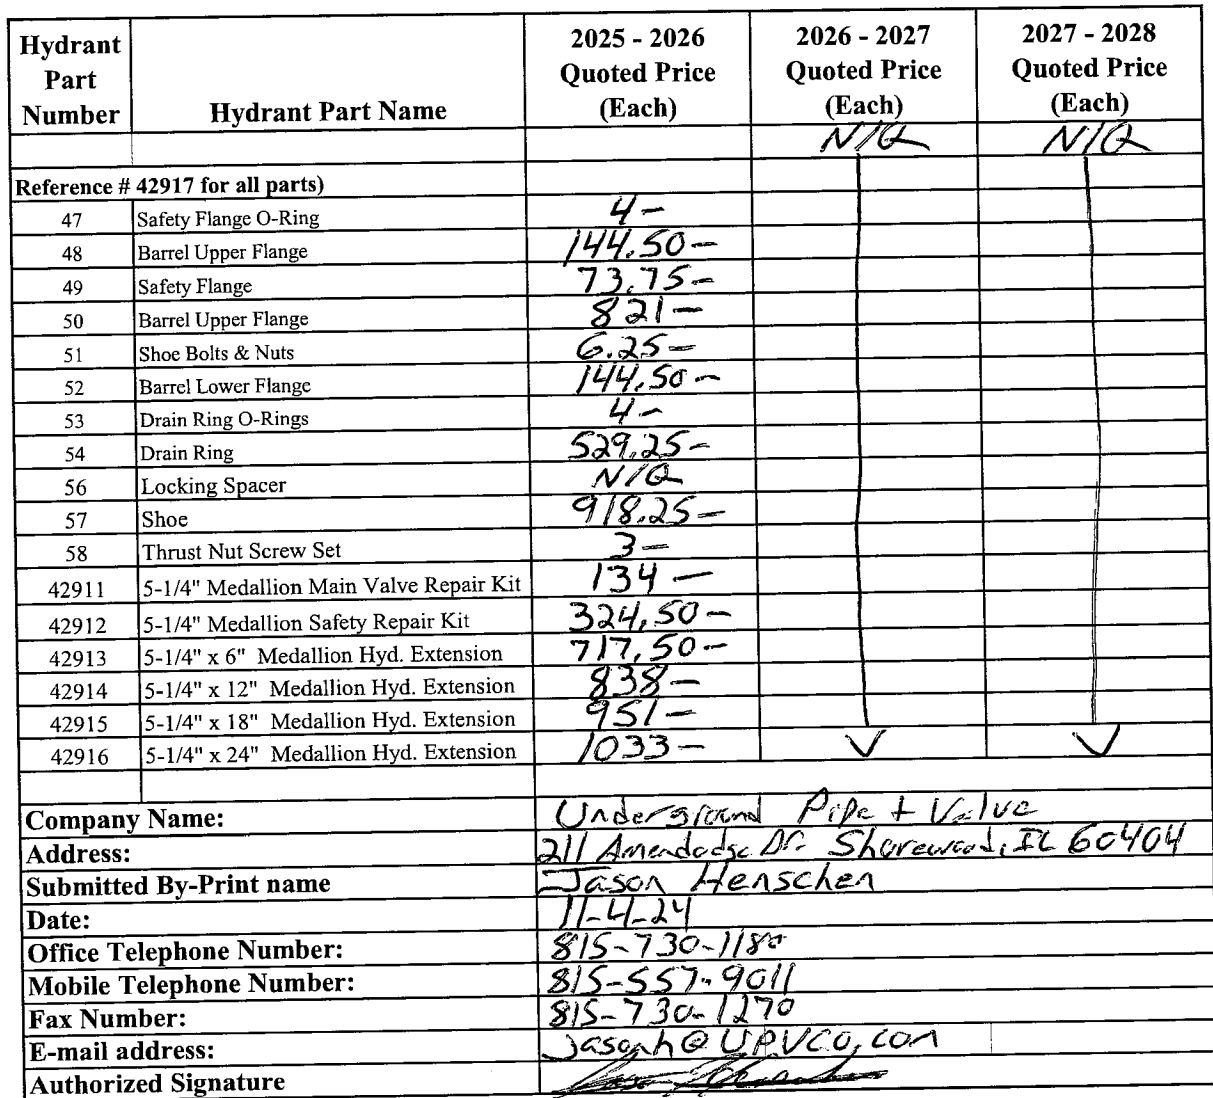 Hydrant Part Number Hydrant Part Name 2025 - 2026 Quoted Price (Each) 2026 - 2027 Quoted Price (Each) 2027 - 2028 Quoted Price (Each)
N/Q N/Q
Reference # 42917 for all parts)
47 Safety Flange O-Ring 4-
48 Barrel Upper Flange 144.50-
49 Safety Flange 73.75-
50 Barrel Upper Flange 821-
51 Shoe Bolts & Nuts 6.25-
52 Barrel Lower Flange 144.50-
53 Drain Ring O-Rings 4-
54 Drain Ring 529.25-
56 Locking Spacer N/Q
57 Shoe 918.25-
58 Thrust Nut Screw Set 3-
42911 5-1/4" Medallion Main Valve Repair Kit 134-
42912 5-1/4" Medallion Safety Repair Kit 324.50-
42913 5-1/4" x 6" Medallion Hyd. Extension 717.50-
42914 5-1/4" x 12" Medallion Hyd. Extension 838-
42915 5-1/4" x 18" Medallion Hyd. Extension 951-
42916 5-1/4" x 24" Medallion Hyd. Extension 1033-
Company Name: Underground Pipe + Valve
Address: 211 Amendodge Dr. Shorewood, IL 60404
Submitted By-Print name Jason Henschen
Date: 11-4-24
Office Telephone Number: 815-730-1180
Mobile Telephone Number: 815-557-9011
Fax Number: 815-730-1270
E-mail address: Jasonh@UPVCO.com
Authorized Signature